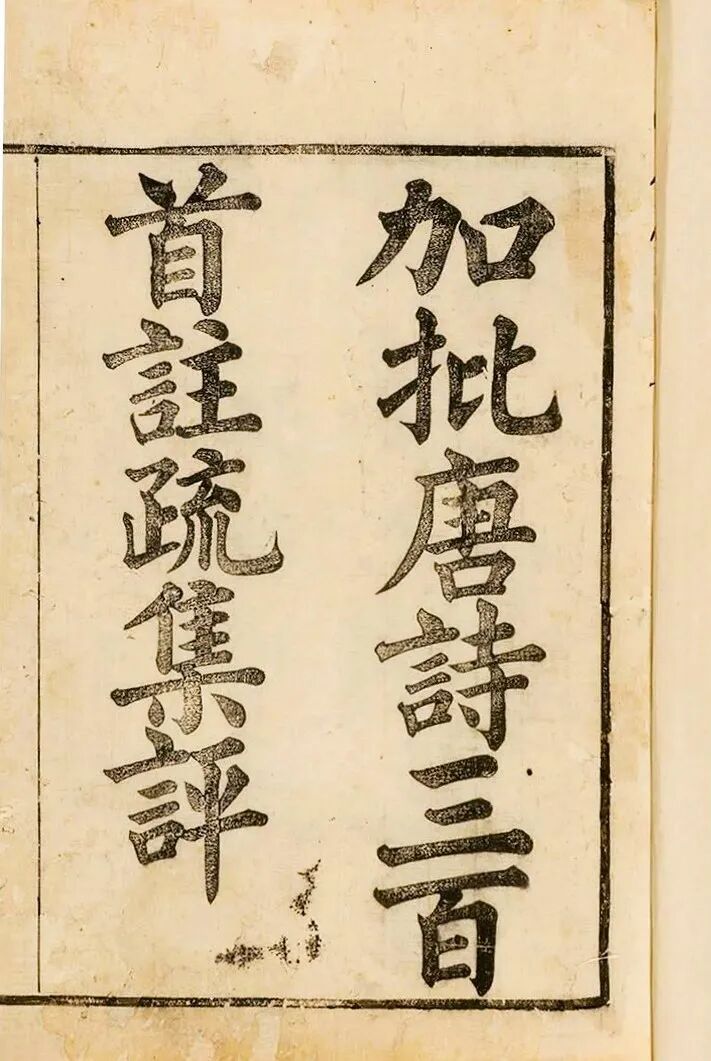 加批唐詩三百
首註疏集評